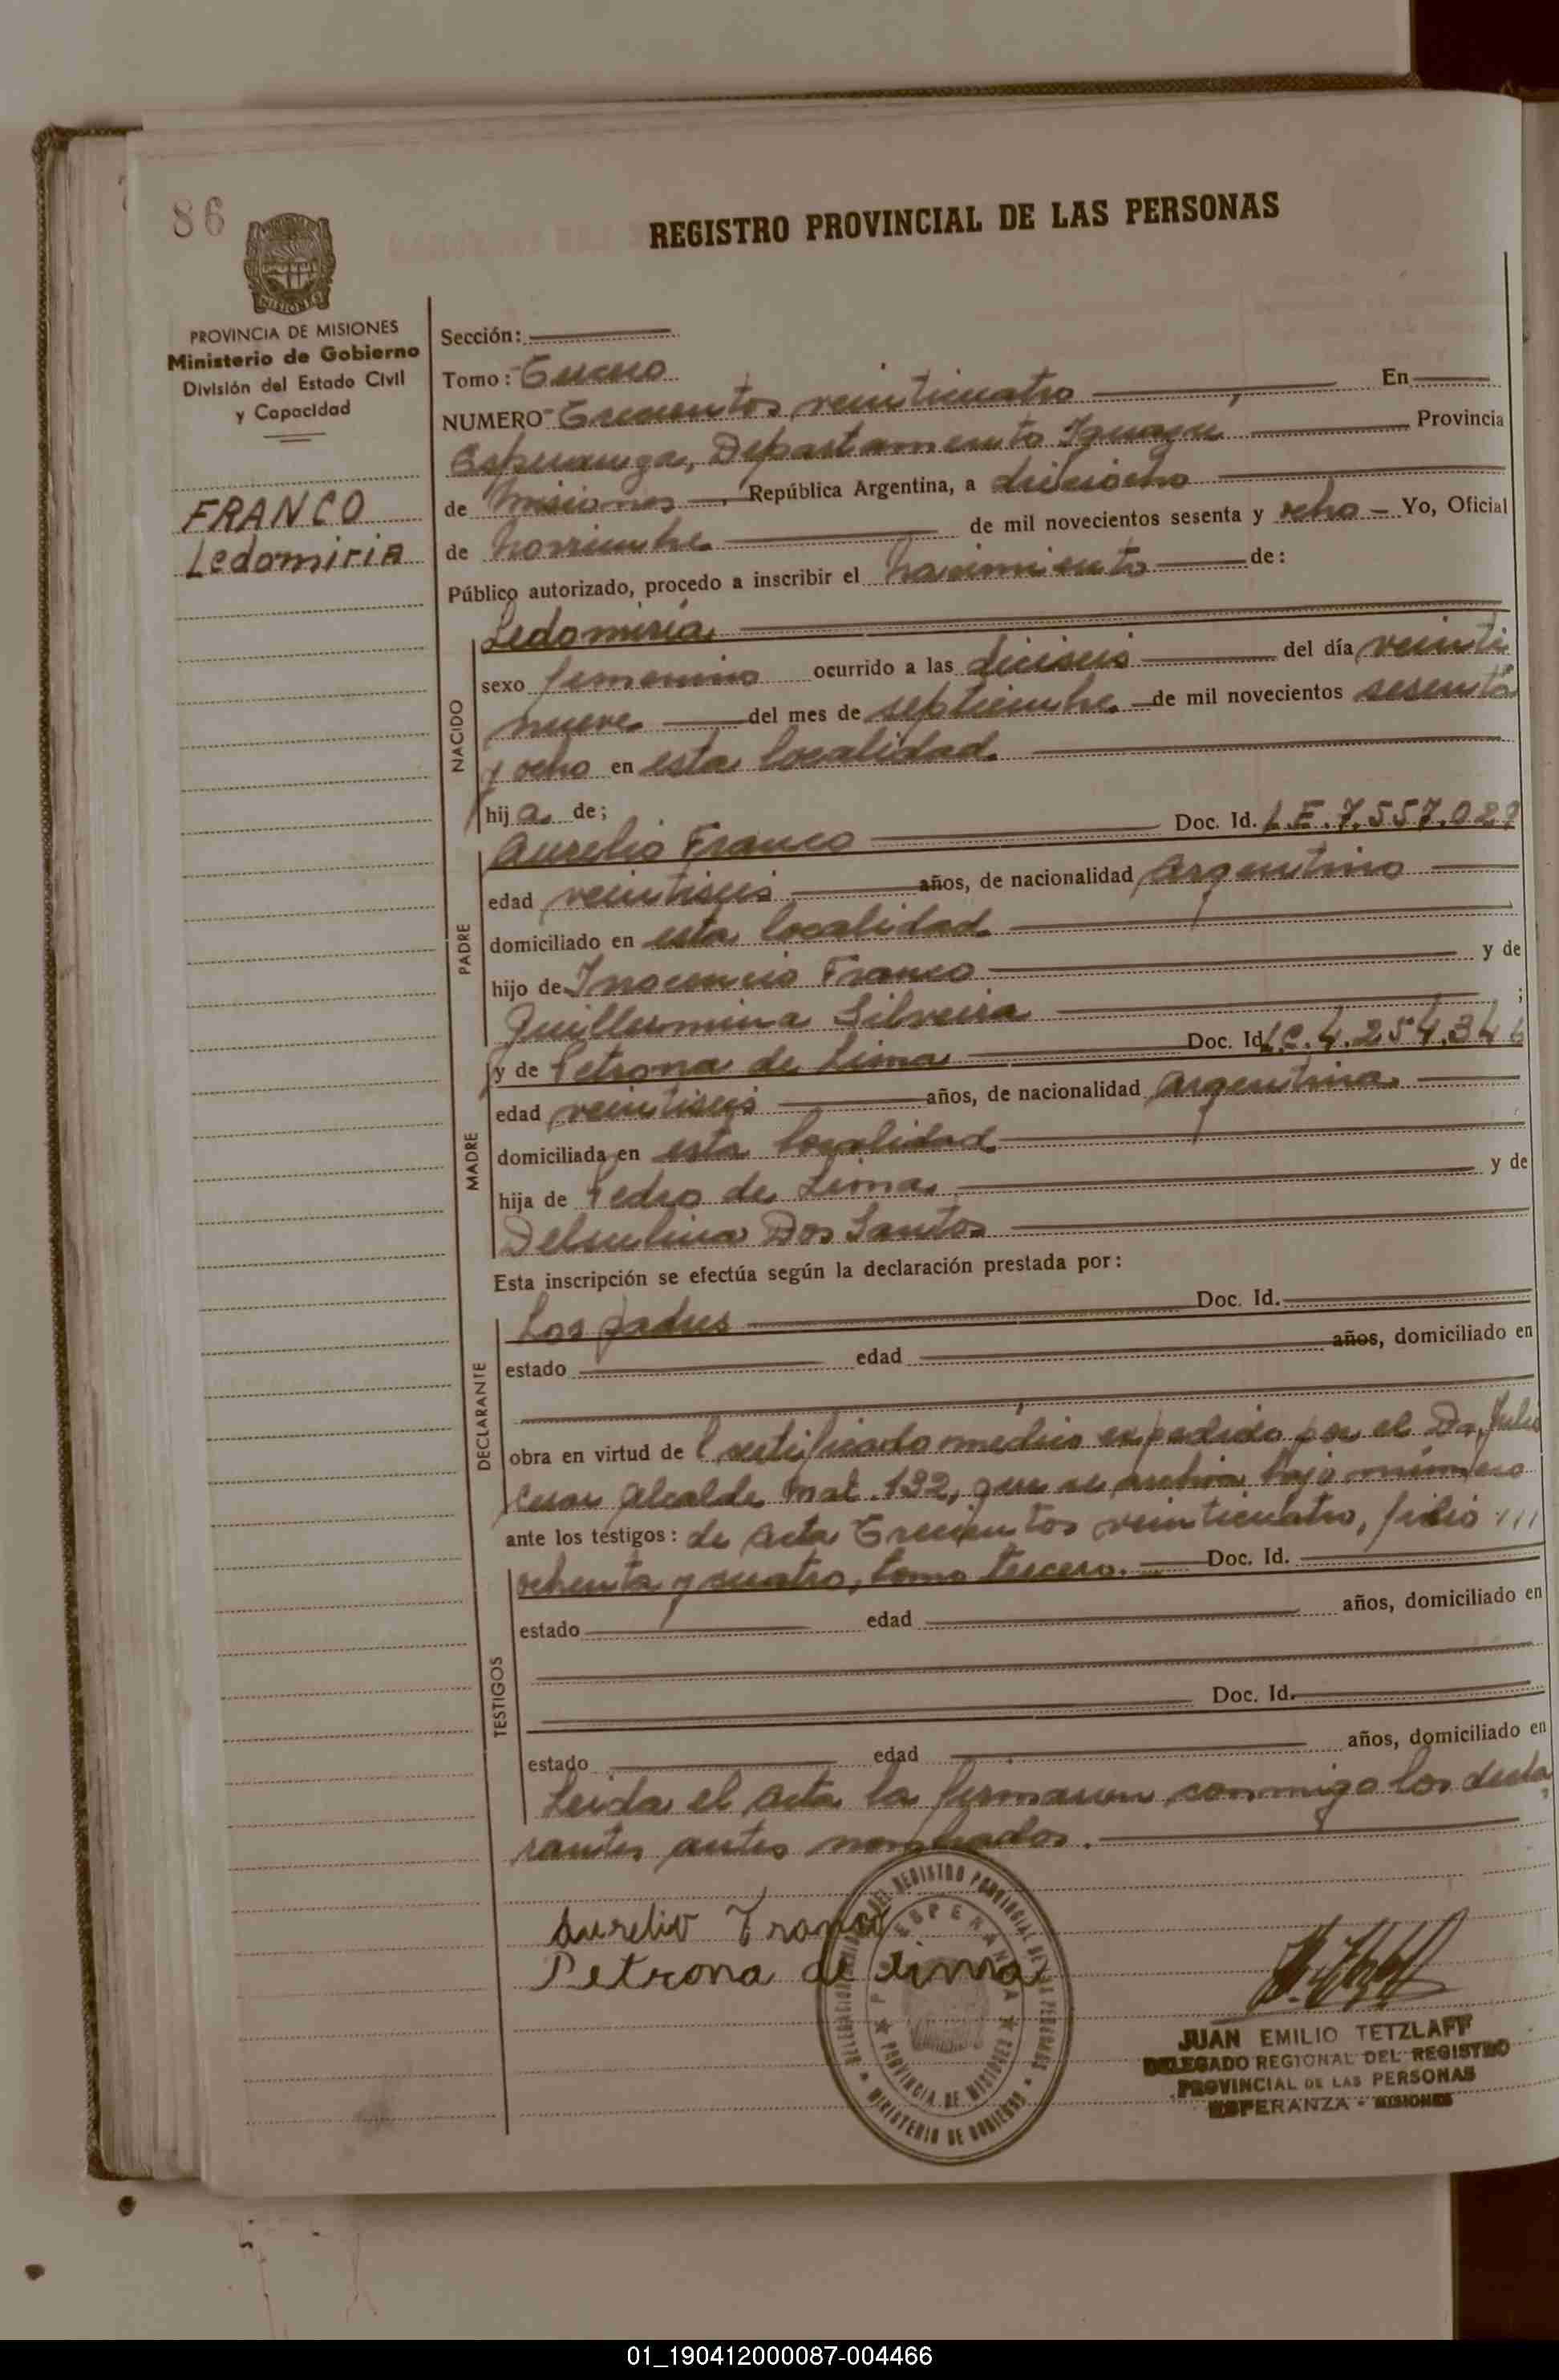 86
REGISTRO PROVINCIAL DE LAS PERSONAS
MISIONES
PROVINCIA DE MISIONES
Ministerio de Gobierno
División del Estado Civil
y Capacidad
FRANCO
Ledomiria
Sección:
Tomo: Tercero
NUMERO Trecientos veinticuatro En
Esperanza, Departamento Iguazu Provincia
de Misiones República Argentina, a dieciocho
de noviembre de mil novecientos sesenta y ocho Yo, Oficial
Público autorizado, procedo a inscribir el nacimiento de:
NACIDO
Ledomiria
sexo femenino ocurrido a las dieciseis del día veinti
nueve del mes de septiembre de mil novecientos sesenta
y ocho en esta localidad.
hija de;
PADRE
Aurelio Franco Doc. Id. L.E. 7.557.029
edad veintiseis años, de nacionalidad Argentino
domiciliado en esta localidad
hijo de Inocencio Franco y de
Guillermina Silveira ;
MADRE
y de Petrona de Lima Doc. Id L.C. 4.254.346
edad veintiseis años, de nacionalidad Argentina
domiciliada en esta localidad
hija de Pedro de Lima y de
Dos Santos
Esta inscripción se efectúa según la declaración prestada por:
DECLARANTE
Los padres Doc. Id.
estado edad años, domiciliado en
obra en virtud de Certificado medico expedido por el Dr. Julio
Cesar Alcalde Mat. 192, que se archiva bajo número
ante los testigos: de Acta Trecientos veinticuatro, folio
TESTIGOS
ochenta y cuatro, tomo tercero. Doc. Id.
estado edad años, domiciliado en
Doc. Id.
estado edad años, domiciliado en
Leida el Acta la firmaron conmigo los decla
rantes antes nombrados.
Aurelio Franco
Petrona de Lima
DEL REGISTRO PROVINCIAL DE LAS PERSONAS
ESPERANZA
PROVINCIA DE MISIONES
MINISTERIO DE GOBIERNO
JUAN EMILIO TETZLAFF
DELEGADO REGIONAL DEL REGISTRO
PROVINCIAL DE LAS PERSONAS
ESPERANZA - MISIONES
01_190412000087-004466